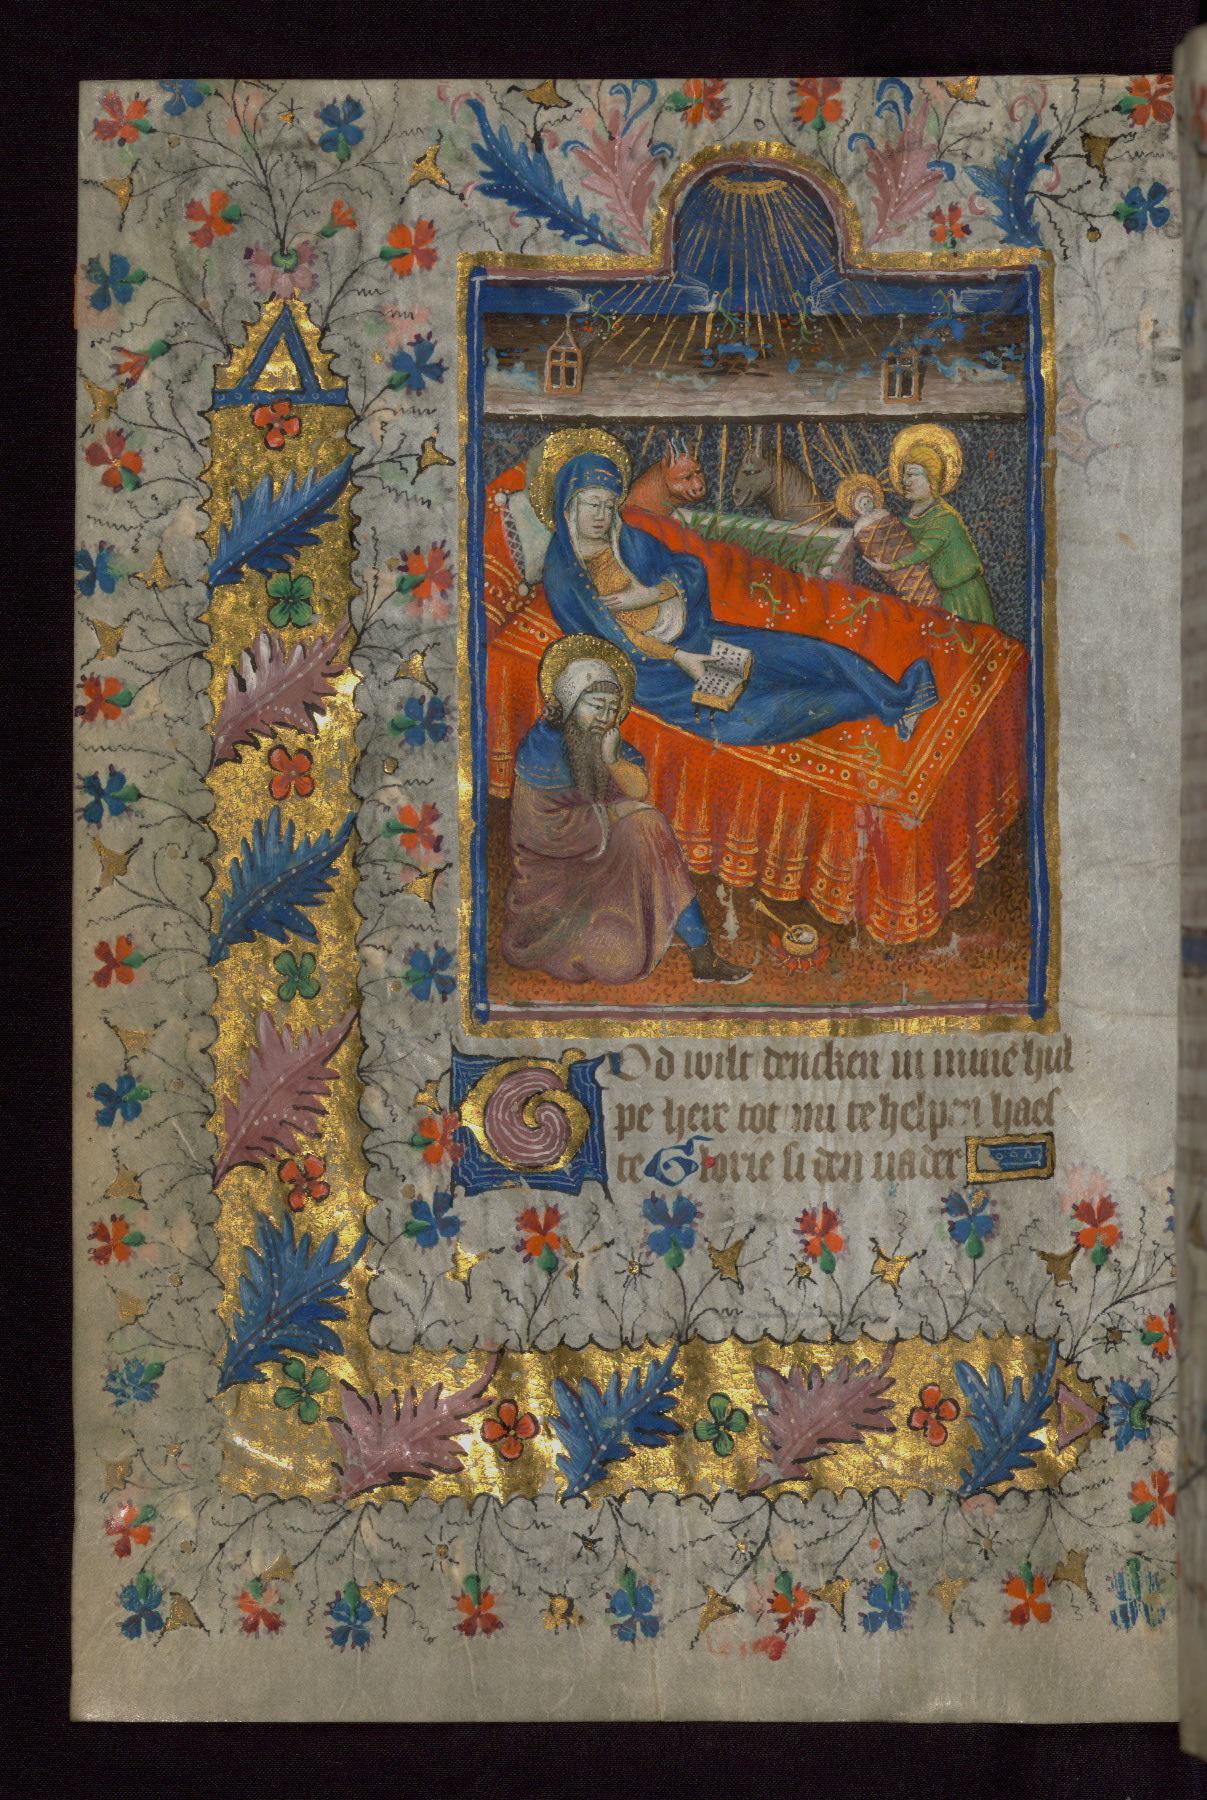 GOd wilt dencken in mine hul
pe here tot mi te helpen haes
te Glorie si den vader